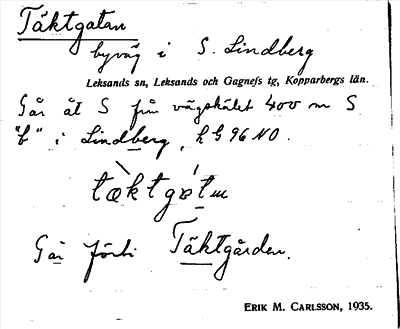 Täktgatan
byväg i S. Lindberg
Leksands sn, Leksands och Gagnefs tg, Kopparbergs län.
Går åt S från vägskälet 400 m S
"b" i Lindberg, h G 96 NO.
tæktgatn
Går förbi Täktgården.
ERIK M. CARLSSON, 1935.